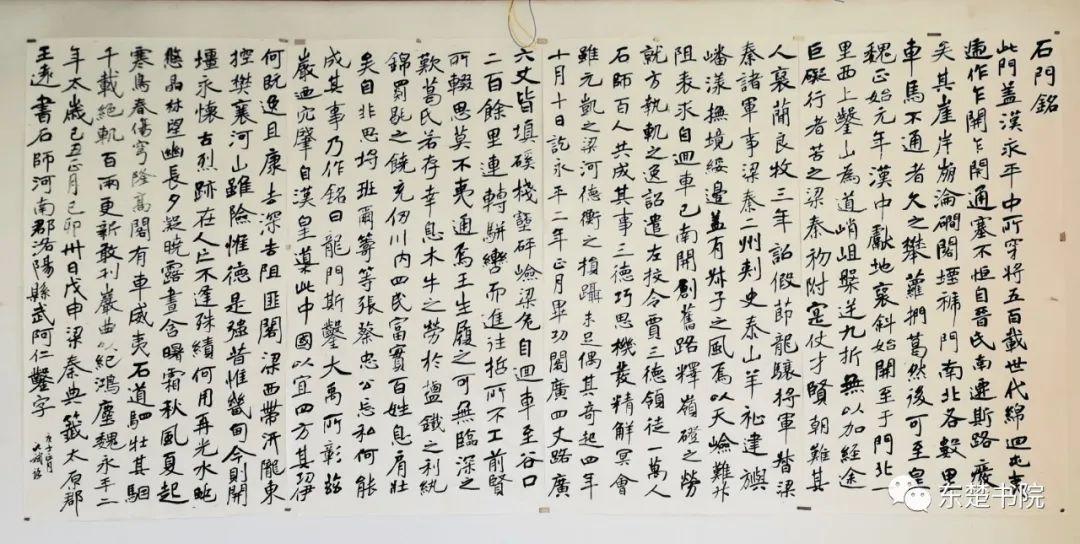 石門銘
此門蓋漢永平中所穿將五百載世代綿迴屯夷
遞作乍開乍閉通塞不恒自晉氏南遷斯路廢
矣其崖岸崩淪磵閣堙褫門南北各數里
車馬不通者久之攀蘿捫葛然後可至皇
魏正始元年漢中獻地褒斜始開至于門北一
里西上鑿山為道峭岨槃迂九折無以加經途
巨礙行者苦之梁秦初附寔仗才賢朝難其
人褒蕳良牧三年詔假節龍驤將軍督梁
秦諸軍事梁秦二州刺史泰山羊祉建旟
嶓漾撫境綏邊蓋有叔子之風焉以天嶮難升
阻表求自迴車已南開創舊路釋嶺磴之勞
就方軌之逸詔遣左校令賈三德領徒一萬人
石師百人共成其事三德巧思機發精解冥會
雖元凱之梁河德衡之損躡未足偶其奇起四年
十月十日訖永平二年正月畢功閣廣四丈路廣
六丈皆填磎棧壑砰嶮梁危自迴車至谷口
二百餘里連輈駢轡而進往哲所不工前賢
所輟思莫不夷通焉王生履之可無臨深之
歎葛氏若存幸息木牛之勞於是鹽鐵之利紈
錦罽毼之饒充仞川內四民富實百姓息肩壯
矣自非思埒班爾籌等張蔡忠公忘私何能
成其事乃作銘曰龍門斯鑿大禹所彰茲
巖迺穴肇自漢皇導此中國以宜四方其功伊
何既逸且康去深去阻匪閣梁西帶汧隴東
控樊襄河山雖險惟德是強昔惟畿甸今則關
壃永懷古烈跡在人亡不逢殊績何用再光水眺
悠皛林望幽長夕凝曉露晝含曙霜秋風夏起
寒鳥春傷穹隆高閣有車轔夷石道駟牡其駰
千載絕軌百兩更新敢刊巖曲以紀鴻塵魏永平二
年太歲己丑正月己卯卅日戊申梁秦典籤太原郡
王遠書石師河南郡洛陽縣武阿仁鑿字
东楚书院